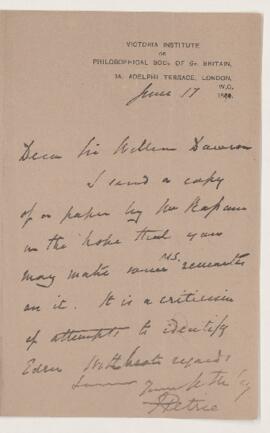 VICTORIA INSTITUTE
OR
PHILOSOPHICAL SOCY OF GT BRITAIN,
ADELPHI TERRACE, LONDON,
W.C.
June 17
Dear Sir William Dawson
I send a copy
of a paper by Mr Rassam
in the hope that you
may make some MS. remarks
on it. It is a criticism
of attempts to identify
Eden With kind regards
Yours
F Petrie